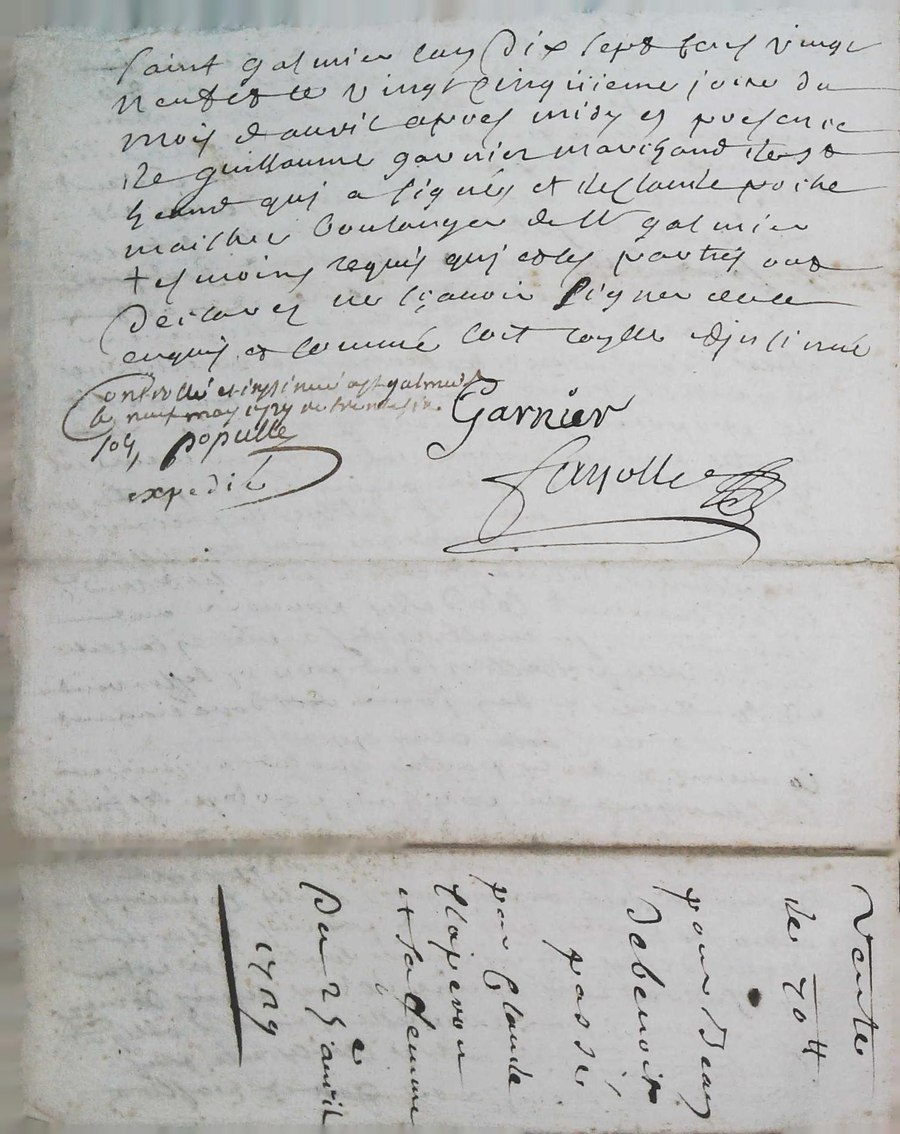 Saint galmier lan Dix sept cens vingt
neuf et le vingt cinquieme jour du
mois d'avril apres midy en presence
de guillaume garnier marchand de st
heand qui a signés et de claude poche
maistre boulanger de st galmier
tesmoins requis qui et les parties ont
declarez ne sçavoir signer de ce
enquis et sommé soit coyllé et insinué
Controllé et insinué a st galmier
le neuf may 1729
sols populle
expedié
Garnier
Vente
de 70 tt
pour Jean
Debenoit
passé
par Claude
Claperon
et Sa femme
Du 25e avril
1729